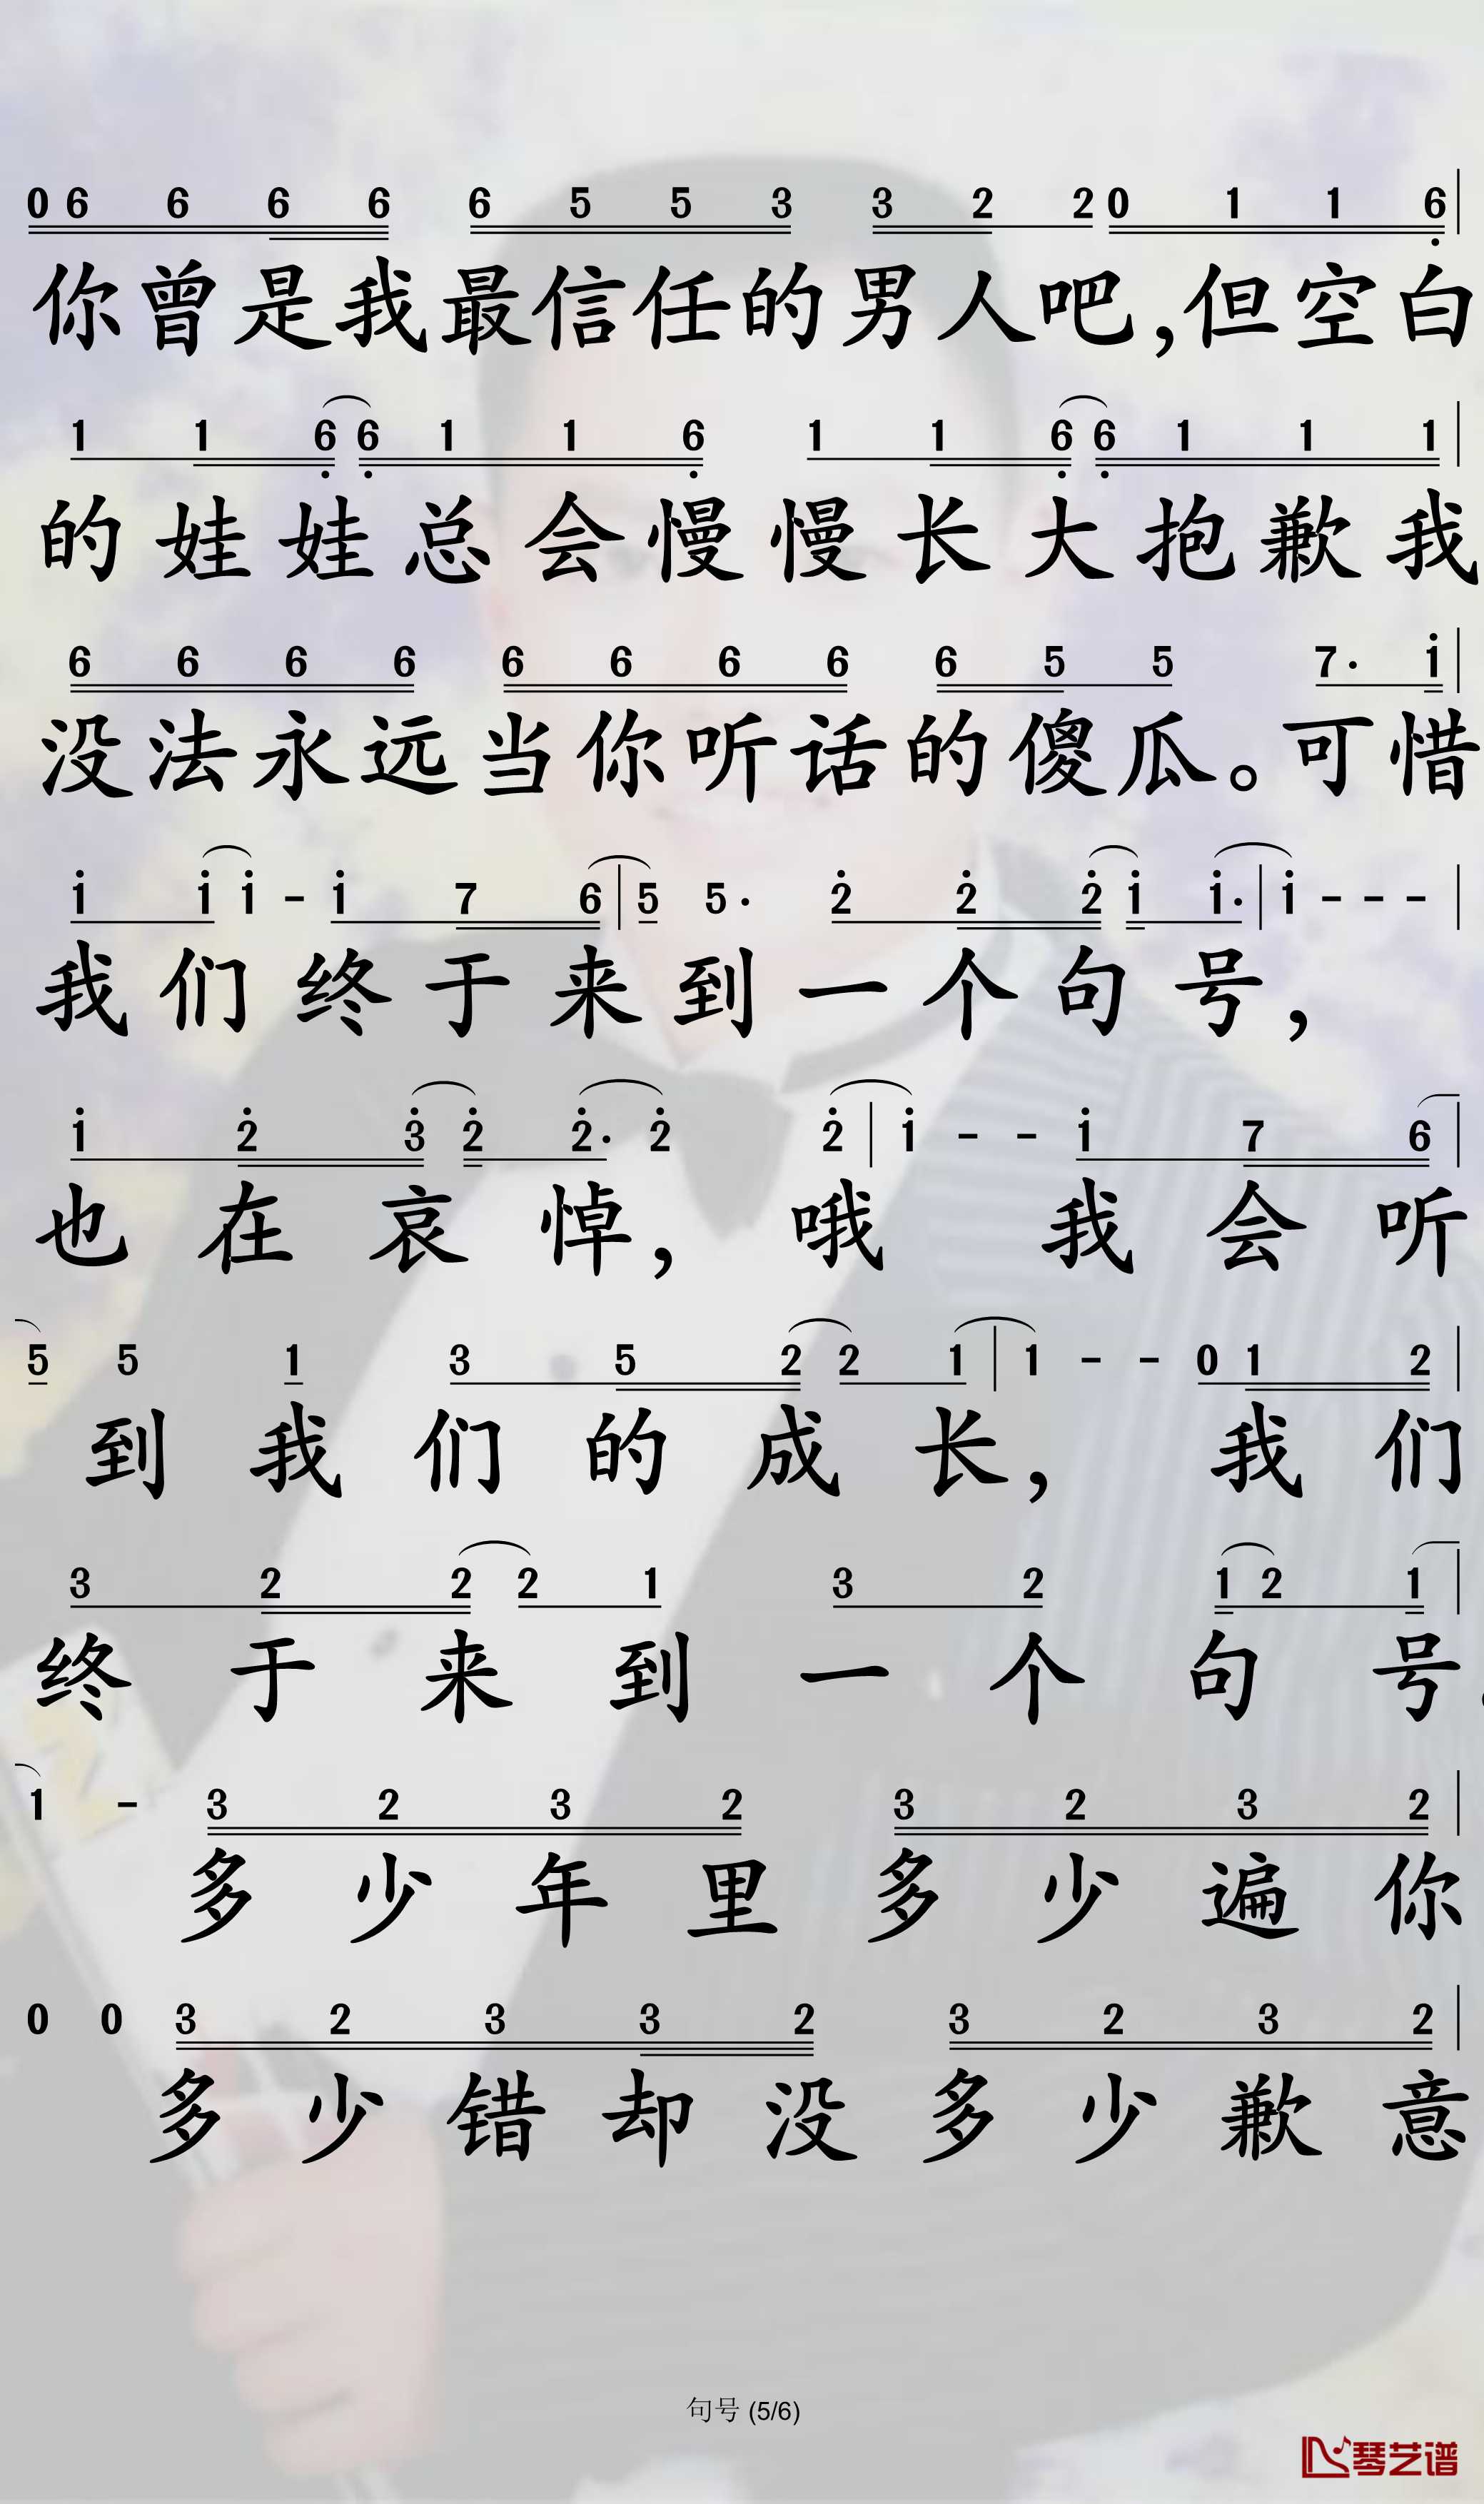 0 6 6 6 6 6 5 5 3 3 2 2 0 1 1 6̣ |
你曾是我最信任的男人吧,但空白
1 1 6̣ 6̣ 1 1 6̣ 1 1 6̣ 6̣ 1 1 1 |
的娃娃总会慢慢长大抱歉我
6 6 6 6 6 6 6 6 6 5 5 7· i |
没法永远当你听话的傻瓜。可惜
i i i - i 7 6 | 5 5· 2̇ 2̇ 2̇ i i· | i - - - |
我们终于来到一个句号,
i 2̇ 3̇ 2̇ 2̇· 2̇ 2̇ | i - - i 7 6 |
也在哀悼,哦 我会听
5 5 1 3 5 2 2 1 | 1 - - 0 1 2 |
到我们的成长, 我们
3 2 2 2 1 3 2 1 2 1 |
终于来到一个句号
1 - 3 2 3 2 3 2 3 2 |
多少年里多少遍你
0 0 3 2 3 3 2 3 2 3 2 |
多少错却没多少歉意
句号 (5/6)
琴艺谱